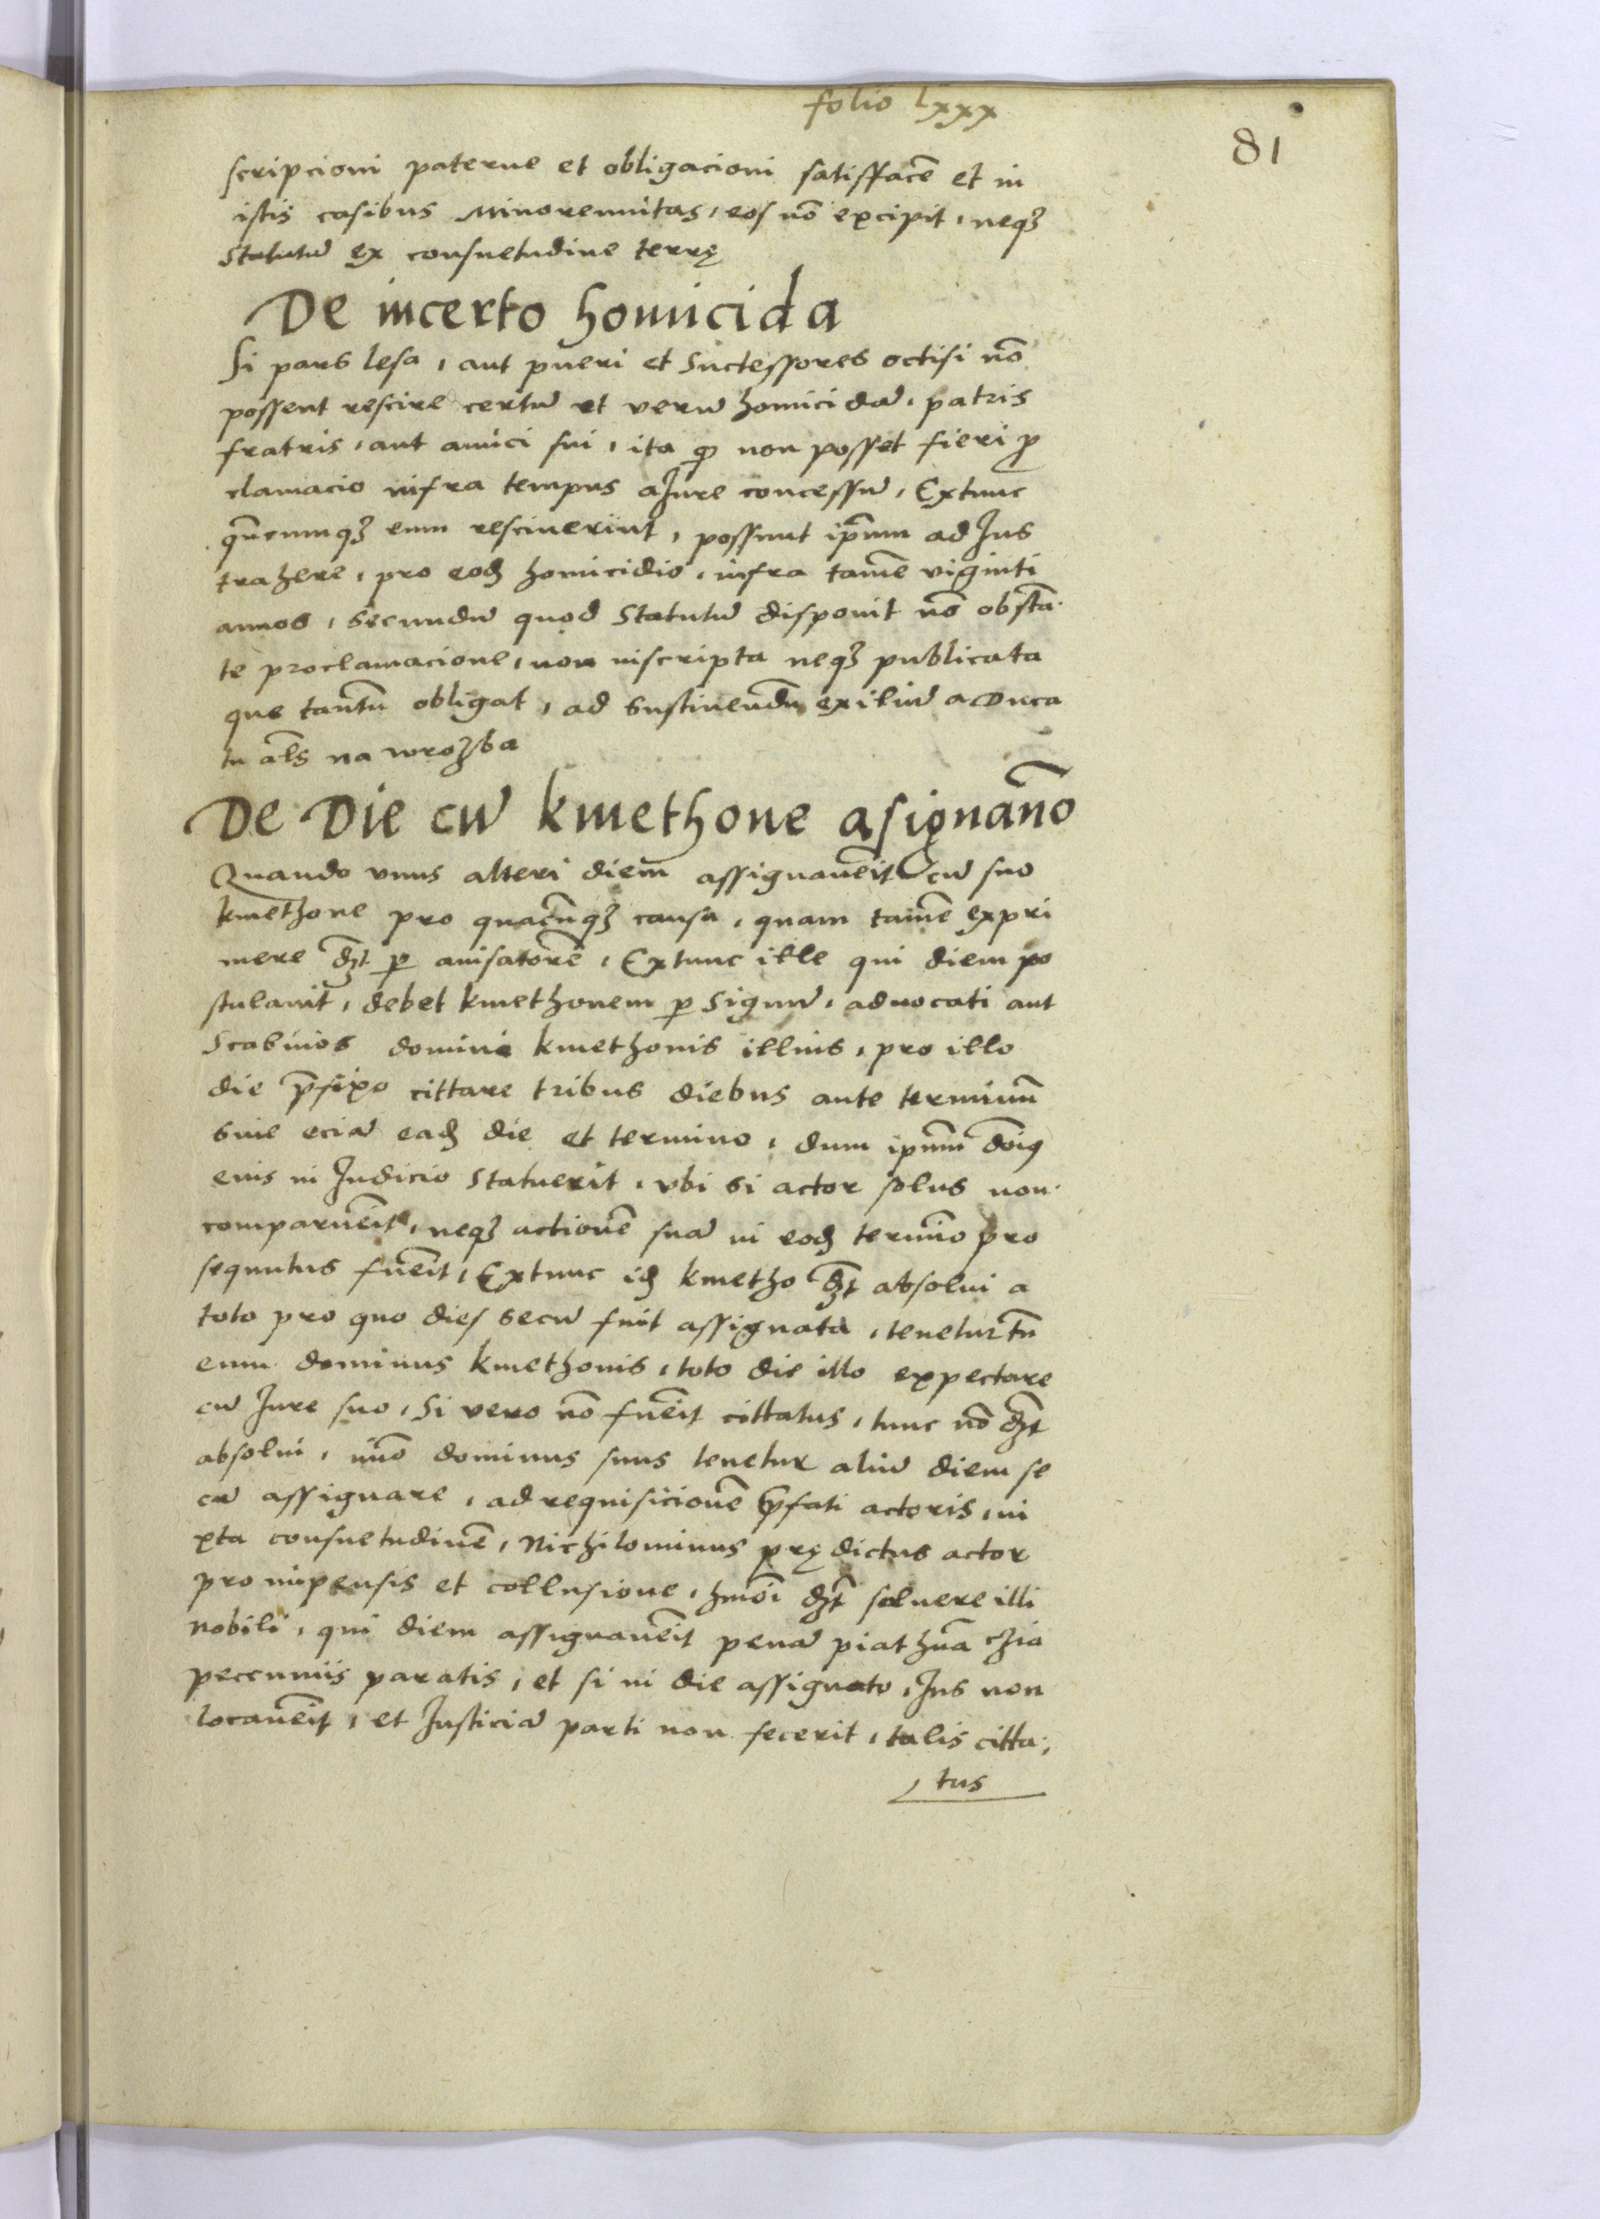 folio lxxx
81
scripcioni paterne et obligacioni satisffacē et in
istis casibus Minorennitas, eos nō excipit, neqꝫ
Statutū ex consuetudine terrę
De incerto homicida
Si pars lesa, aut pueri et Suctessores octisi nō
possent rescire certū et verū homicidā, patris
fratris, aut amici sui, ita ꝙ non posset fieri ꝓ
clamacio infra tempus a Jure concessū, Extunc
qn̄cumqꝫ eum resciuerint, possunt ip̄um ad Jus
trahere, pro eodꝫ homicidio, infra tamē viginti
annos, Secundū quod Statutū disponit nō obstā
te proclamacione, non inscripta neqꝫ publicata
que tantū obligat, ad Sustinendū exiliū a Duca
tu al̄s na wrozba
De Die cū kmethone asignan̄o
Quando vnus alteri diem assignauēit cū suo
kmethone pro quacūqꝫ causa, quam tamē expri
mere dꝫt ꝑ auisatorē, Extunc ille qui diem po
stulauit, debet kmethonem ꝑ Signū, aduocati aut
Scabinos domini kmethonis illius, pro illo
die p̄fixo cittare tribus diebus ante terminū
Siue eciā eadꝫ die et termino, dum ipsum̄ dn̄ꝰ
eius in Judicio Statuerit, vbi si actor solus non
comparuēit, neqꝫ actionē suā in eodꝫ termīo pro
sequutus fuēit, Extunc idꝫ kmetho dꝫt absolui a
toto pro quo dies secū fuit assignata, tenetur tn̄
eum dominus kmethonis, toto die illo expectare
cū Jure suo, Si vero nō fuēit cittatus, tunc nō dꝫt
absolui, imō dominus suus tenetur aliū diem se
cū assignare, ad requisicionē p̄fati actoris, iu
xta consuetudinē, Nichilominus prędictus actor
pro impensis et collusione, hmōi dꝫt soluere illi
nobili, qui diem assignauēit penā piathnā czia
peccuniis paratis, et si in die assignato, Jus non
locauēit, et Justiciā parti non fecerit, talis citta,
tus